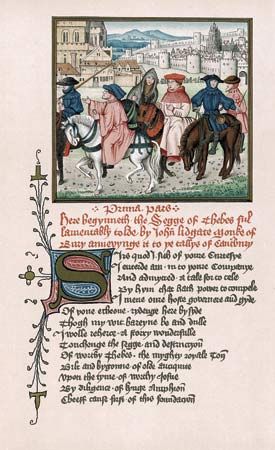 Prima Pars
Here begynneth the Segge of Thebes ful
lamentably tolde by John Lidgate Monke of
Bury annexynge it to ye tallys of Canterbury
Sirs quod I sith of youre curtesye
I entrede am in to youre Companye
And admytted a tale for to telle
By hym that hath power to compelle
I mene oure hoste governere and gyde
Of youe echone rydenge here by side
Thogh my wit bareyne be and dulle
I wolle reherce a story wonderfulle
Touchynge the segge and destruccyon
Of worthy Thebes the myghty royale Ton
Bilt and bygonne of olde antiquite
Upon the tyme of worthy Josue
By diligence of kynge Amphion
Cheeff cause first of this foundacion